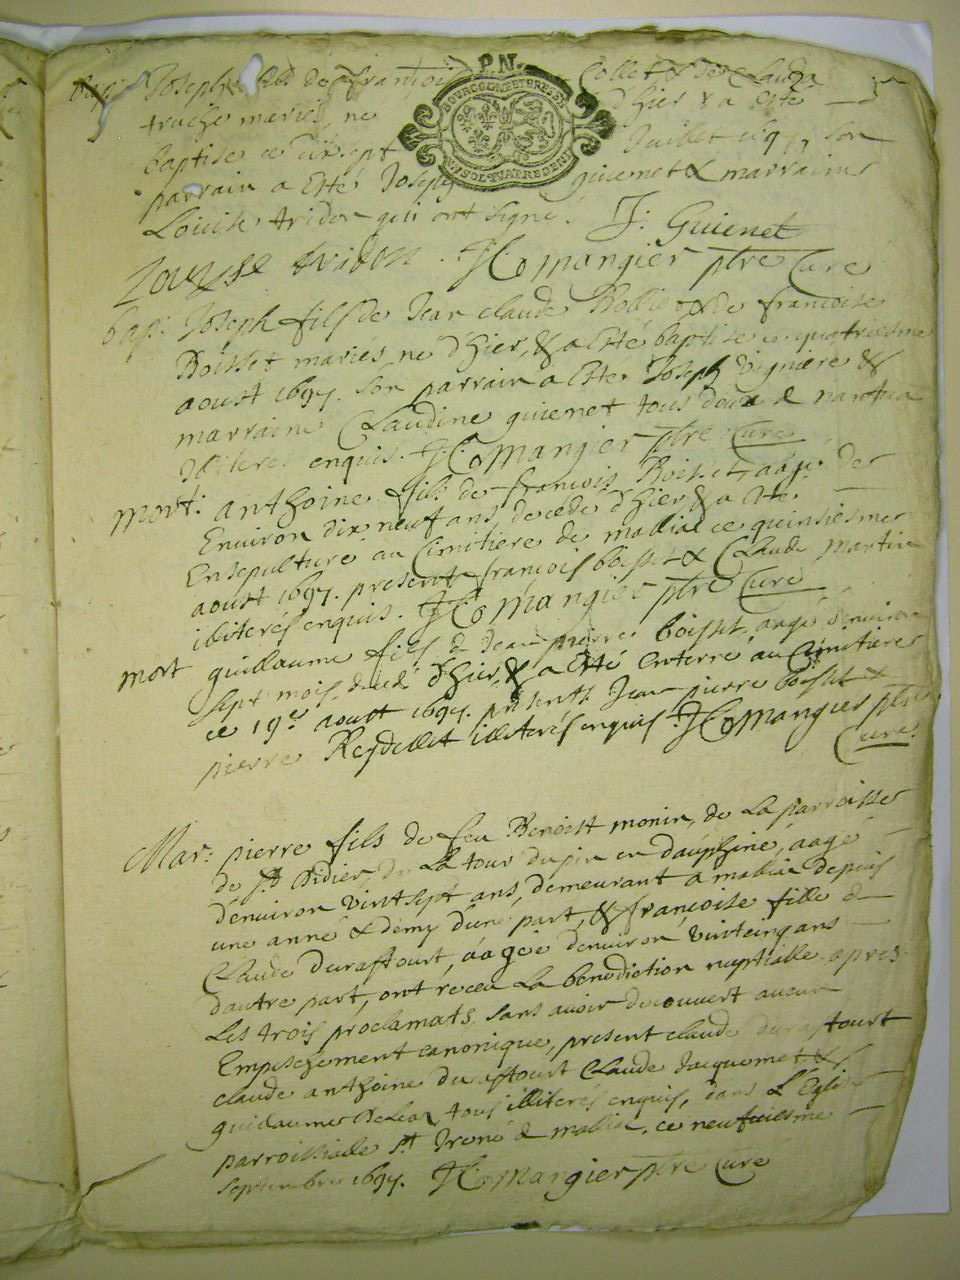 P.N.
BOURGOGNE ET BRESSE
UN SOL QUATRE DEN
Bap. Joseph fils de francois Collet & de Clauda
truche mariés, ne d'hier & a esté
baptise ce dixsept Juillet 1697, son
parrain a esté Joseph guienet & marraine
Louise tridon qui ont signé. J: Guienet
Louyse tridon. Mangier ptre Curé
bap: Joseph fils de Jean claude & de francoise
Boisset mariés, ne d'hier, & a esté baptise ce quatriesme
aoust 1697. son parrain a esté Joseph &
marraine Claudine guienet tous deux de nantua
illiteres enquis. Mangier ptre Curé
mort. anthoine fils de francois Boisset, aage de
Environ dix neuf ans, decede d'hier & a esté
Ensepulturé au Cimitiere de maillia ce quinsiesme
aoust 1697. presents francois boisset & Claude Martin
illiterés enquis. Mangier ptre Curé
mort guillaume fils de Jean pierre boisset, aagé d'environ
sept mois, decedé d'hier, & a esté enterré au Cimitiere
ce 19e. aoust 1697. presents Jean pierre boisset &
pierre Reydellet illiterés enquis Mangier ptre
Curé.
Mar: pierre fils de feu Benoist monin, de La parroisse
de st Didier, de La tour du pin en dauphiné, aagé
d'environ vint sept ans, demeurant a maillia depuis
une anné & demy d'une part, & françoise fille de
Claude Duraffourt, aagée d'environ vint cinq ans
dautre part, ont receu La benediction nuptialle apres
Les trois proclamats sans avoir decouvert aucun
Empeschement canonique, present claude duraffourt
claude anthoine duraffourt Claude Jacquemet &
guillaume tous illiterés enquis, dans L'Eglise
parroissialle st de maillia, ce neufuiesme
septembre 1697. Mangier ptre Curé